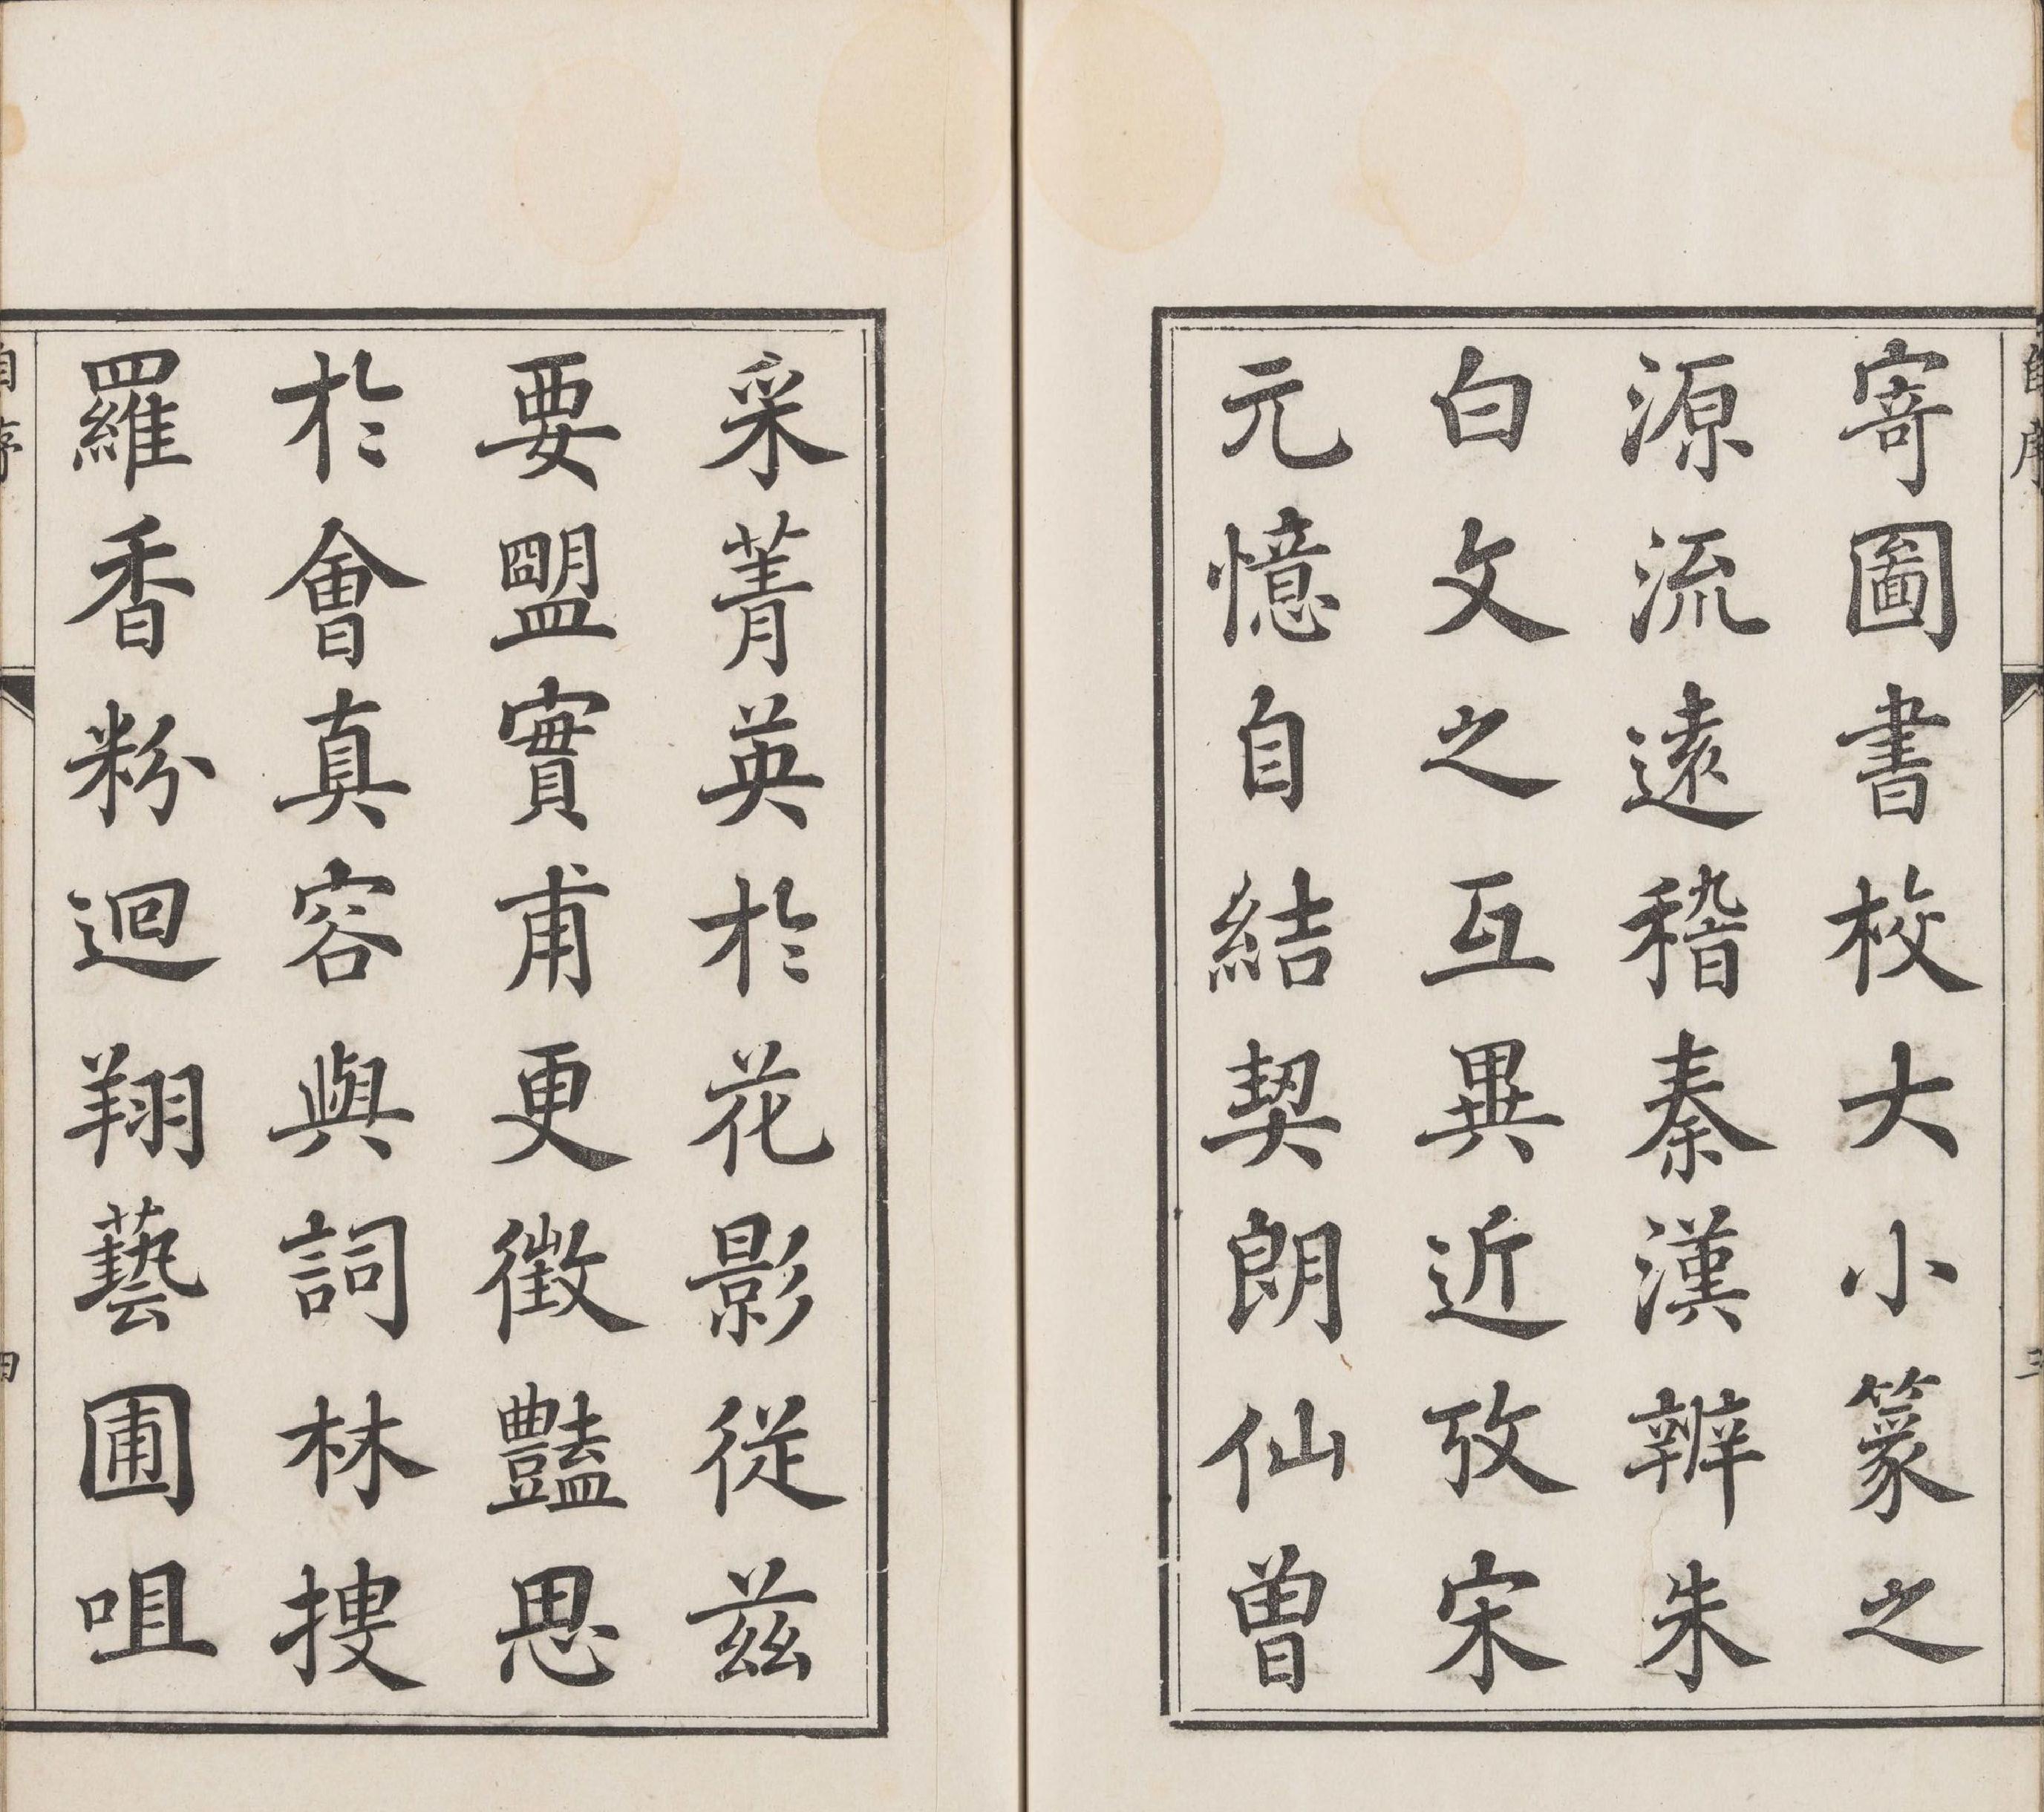 自序
三
寄圖書校大小篆之
源流遠稽秦漢辨朱
白文之互異近攷宋
元憶自結契朗仙曾
采菁英於花影從茲
要盟實甫更徵豔思
於會真容與詞林搜
羅香粉迴翔藝圃咀
自序
四